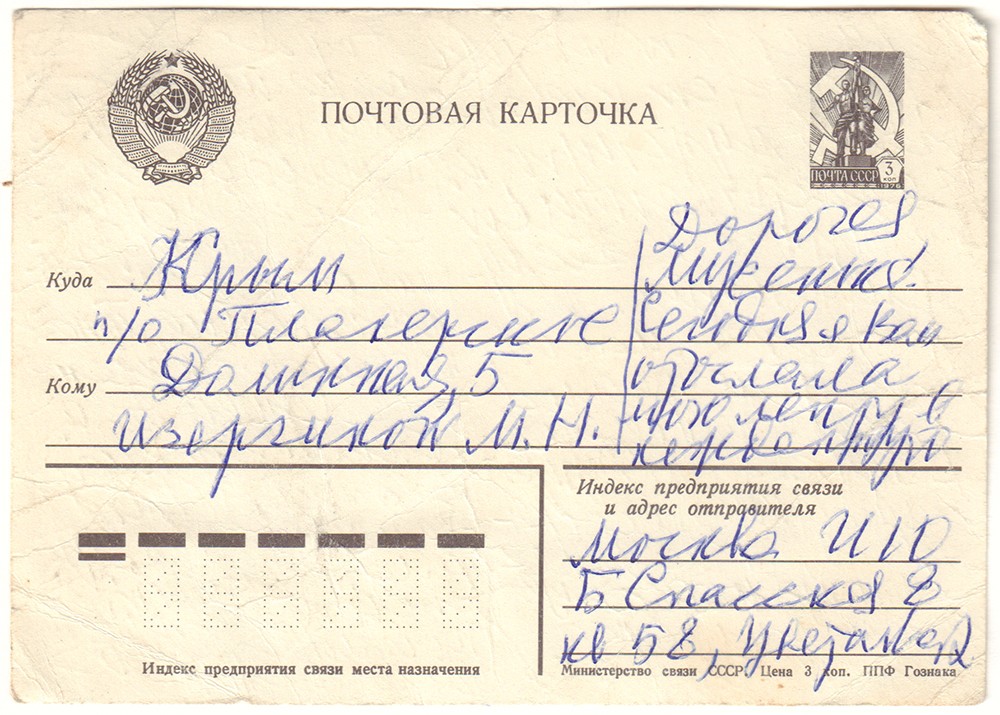 ПОЧТОВАЯ КАРТОЧКА
ПОЧТА СССР 3 КОП
1976
Куда Крым
п/о Планерское
Долинная, 5
Кому
Изергиной М. Н.
Дорогая
Мусенька!
Сегодня Вам
отослала
Индекс предприятия связи
и адрес отправителя
Москва И 10
Б Спасская 8
кв 58, Цветаева
Индекс предприятия связи места назначения
Министерство связи СССР. Цена 3 коп. ППФ Гознака